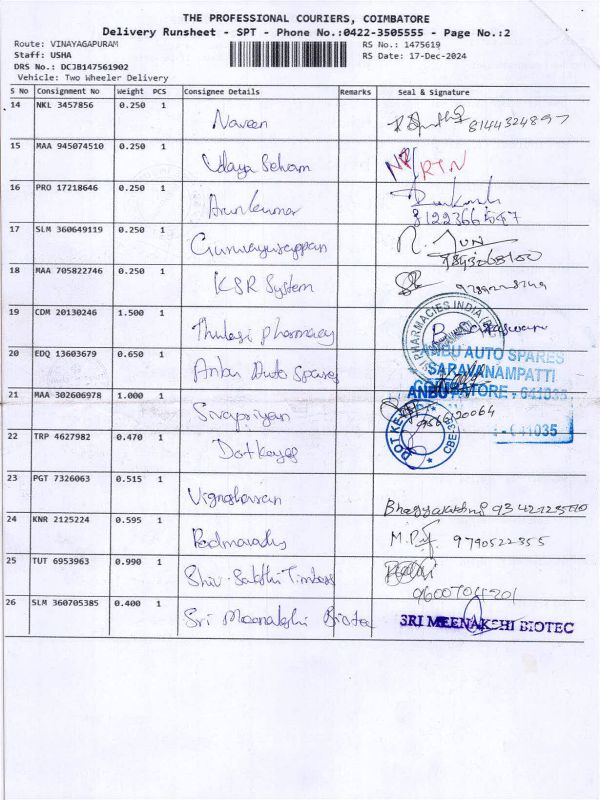 THE PROFESSIONAL COURIERS, COIMBATORE
Delivery Runsheet - SPT - Phone No.:0422-3505555 - Page No.:2
Route: VINAYAGAPURAM
RS No.: 1475619
Staff: USHA
RS Date: 17-Dec-2024
DRS No.: DCJB147561902
Vehicle: Two Wheeler Delivery
S No Consignment No Weight PCS Consignee Details Remarks Seal & Signature
14 NKL 3457856 0.250 1 Naveen 8144324897
15 MAA 945074510 0.250 1 Udaya Selvam RTN
16 PRO 17218646 0.250 1 Arun kumar
17 SLM 360649119 0.250 1 Guruvayurappan
18 MAA 705822746 0.250 1 KSR System
19 CDM 20130246 1.500 1 Thulasi pharmacy PHARMACIES INDIA
20 EDQ 13603679 0.650 1 Anbu Auto Spares ANBU AUTO SPARES
SARAVANAMPATTI
21 MAA 302606978 1.000 1 Sivapriyan 9566120064
22 TRP 4627982 0.470 1 Dotkeyes DOT KEYES
641035
23 PGT 7326063 0.515 1 Vigneshwaran
24 KNR 2125224 0.595 1 Padmavathy 9790522355
25 TUT 6953963 0.990 1 Shiv Sakthi Timbers
26 SLM 360705385 0.400 1 Sri Meenakshi Biotec SRI MEENAKSHI BIOTEC